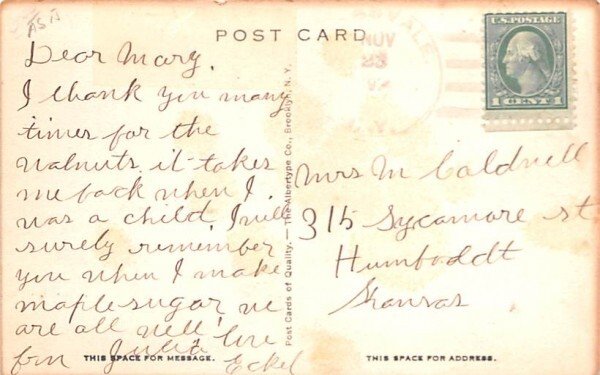 POST CARD
U.S. POSTAGE
1 CENT 1
NOV
23
Dear Mary,
I thank you many
times for the
walnuts it takes
me back when I
was a child. I will
surely remember
you when I make
maple sugar we
are all well love
from Julia
Eckel
Post Cards of Quality. — The Albertype Co., Brooklyn, N. Y.
Mrs M Caldwell
315 Sycamore st
Humboldt
Kansas
THIS SPACE FOR MESSAGE.
THIS SPACE FOR ADDRESS.